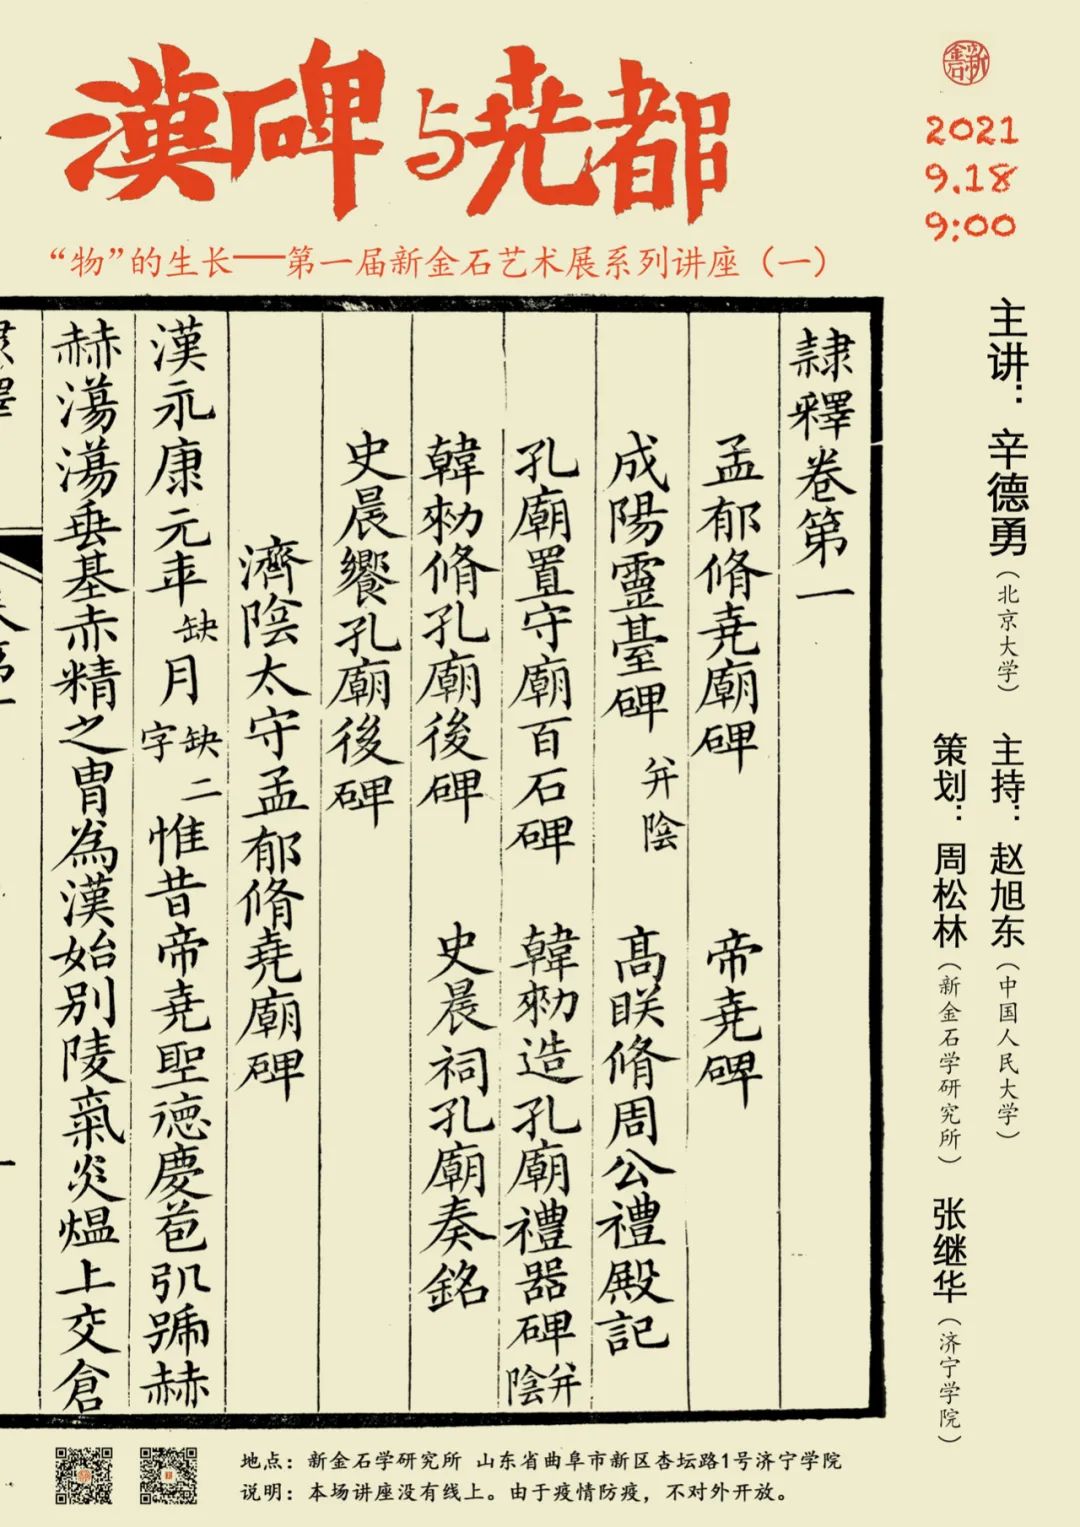 漢碑与尭都
2021
9.18
9:00
“物”的生长——第一届新金石艺术展系列讲座（一）
主讲：辛德勇（北京大学）
主持：赵旭东（中国人民大学）
策划：周松林（新金石学研究所） 张继华（济宁学院）
隷釋卷第一
孟郁脩尭廟碑 帝尭碑
成陽靈臺碑 并陰 高眹脩周公禮殿記
孔廟置守廟百石碑 韓勑造孔廟禮器碑 并陰
韓勑脩孔廟後碑 史晨祠孔廟奏銘
史晨饗孔廟後碑
濟陰太守孟郁脩尭廟碑
漢永康元年缺月缺二字惟昔帝尭聖德慶苞㢧號赫
赫蕩蕩垂基赤精之胄為漢始別陵氣炎熅上交倉
地点：新金石学研究所 山东省曲阜市新区杏坛路1号济宁学院
说明：本场讲座没有线上。由于疫情防疫，不对外开放。